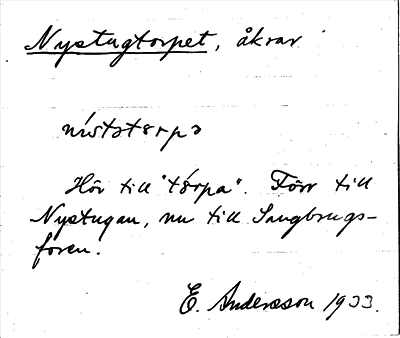 Nystugtorpet, åkrar
Hör till "tórpa". Förr till
Nystugan, nu till Sangbrugs-
foren.
E. Andersson 1933.